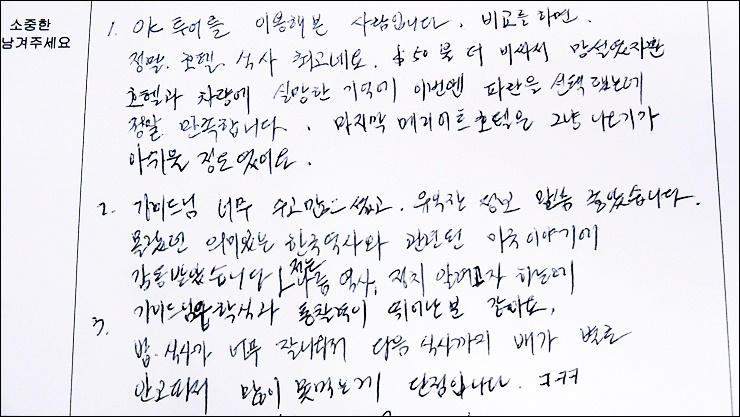 소중한
남겨주세요
1. 아K 투어를 이용해본 사람입니다. 비교를 하면.
정말. 호텔. 식사 최고네요. $50불 더 비싸서 망설였지만
호텔과 차량에 실망한 기억에 이번엔 파란을 선택했는데
정말 만족합니다. 마지막 메리어트 호텔은 그냥 나오기가
아쉬울 정도였어요.
2. 가이드님 너무 수고많으셨고. 유익한 정보 말씀 좋았습니다.
몰랐던 의미있는 한국역사와 관련된 미국이야기에
감동받았습니다. 저는 나름 역사, 정치 알려고자 하는데
가이드님 학식과 통찰력이 뛰어난분 같아요.
3. 밥. 식사가 너무 잘나와서 다음 식사까지 배가 별로
안고파서 많이 못먹는게 단점입니다. ㅋㅋㅋ